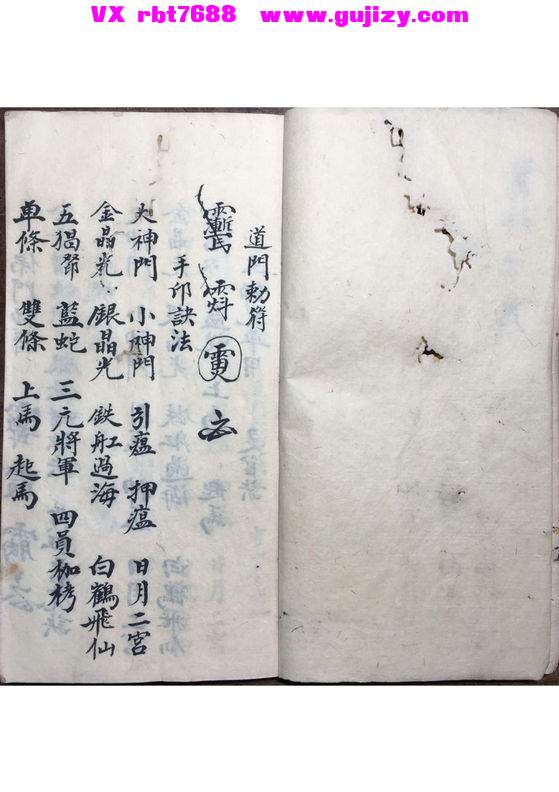 VX rbt7688 www.gujizy.com
道門勅符
手印訣法
大神門 小神門 引瘟 押瘟 日月二宮
金晶光 銀晶光 鉄船過海 白鶴飛仙
五猖 藍蛇 三元將軍 四員枷栲
車條 雙條 上馬 起馬